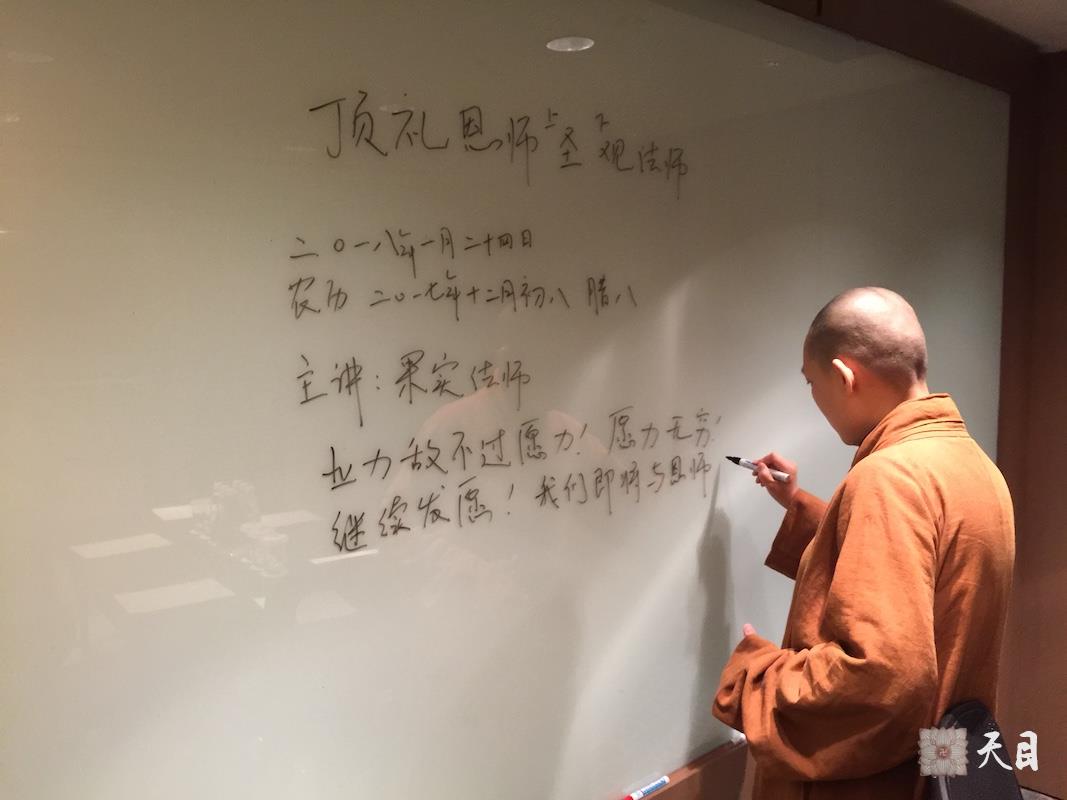 顶礼恩师上圣下观法师
二〇一八年一月二十四日
农历 二〇一七年十二月初八 腊八
主讲：果实法师
业力敌不过愿力！愿力无穷！
继续发愿！我们即将与恩师
天目